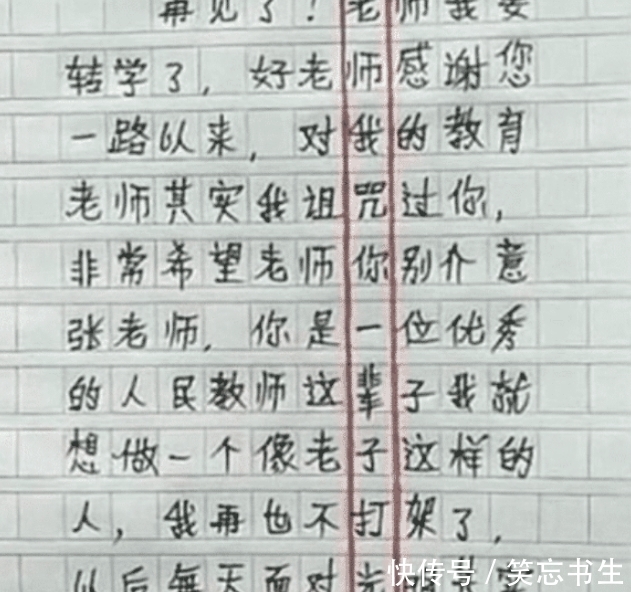 再见了！老师我要
转学了，好老师感谢您
一路以来，对我的教育
老师其实我诅咒过你，
非常希望老师你别介意
张老师，你是一位优秀
的人民教师这辈子我就
想做一个像老子这样的
人，我再也不打架了，
以后每天面对光
快传号／笑忘书生